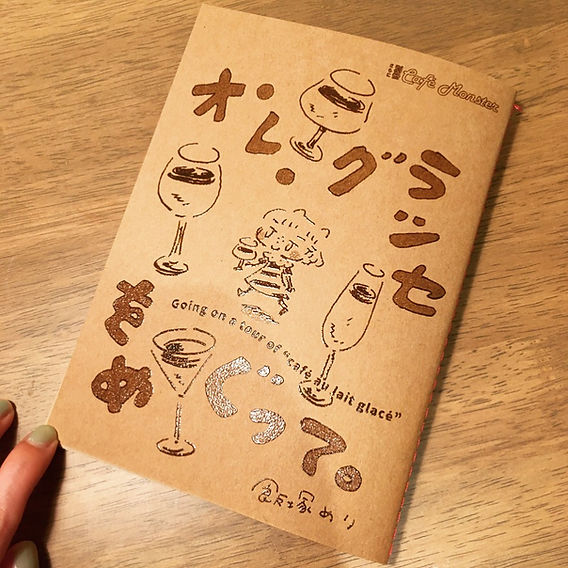 Café Monster
オ・レ・グラッセ
をめぐって。
Going on a tour of "café au lait glacé"
飯塚めり